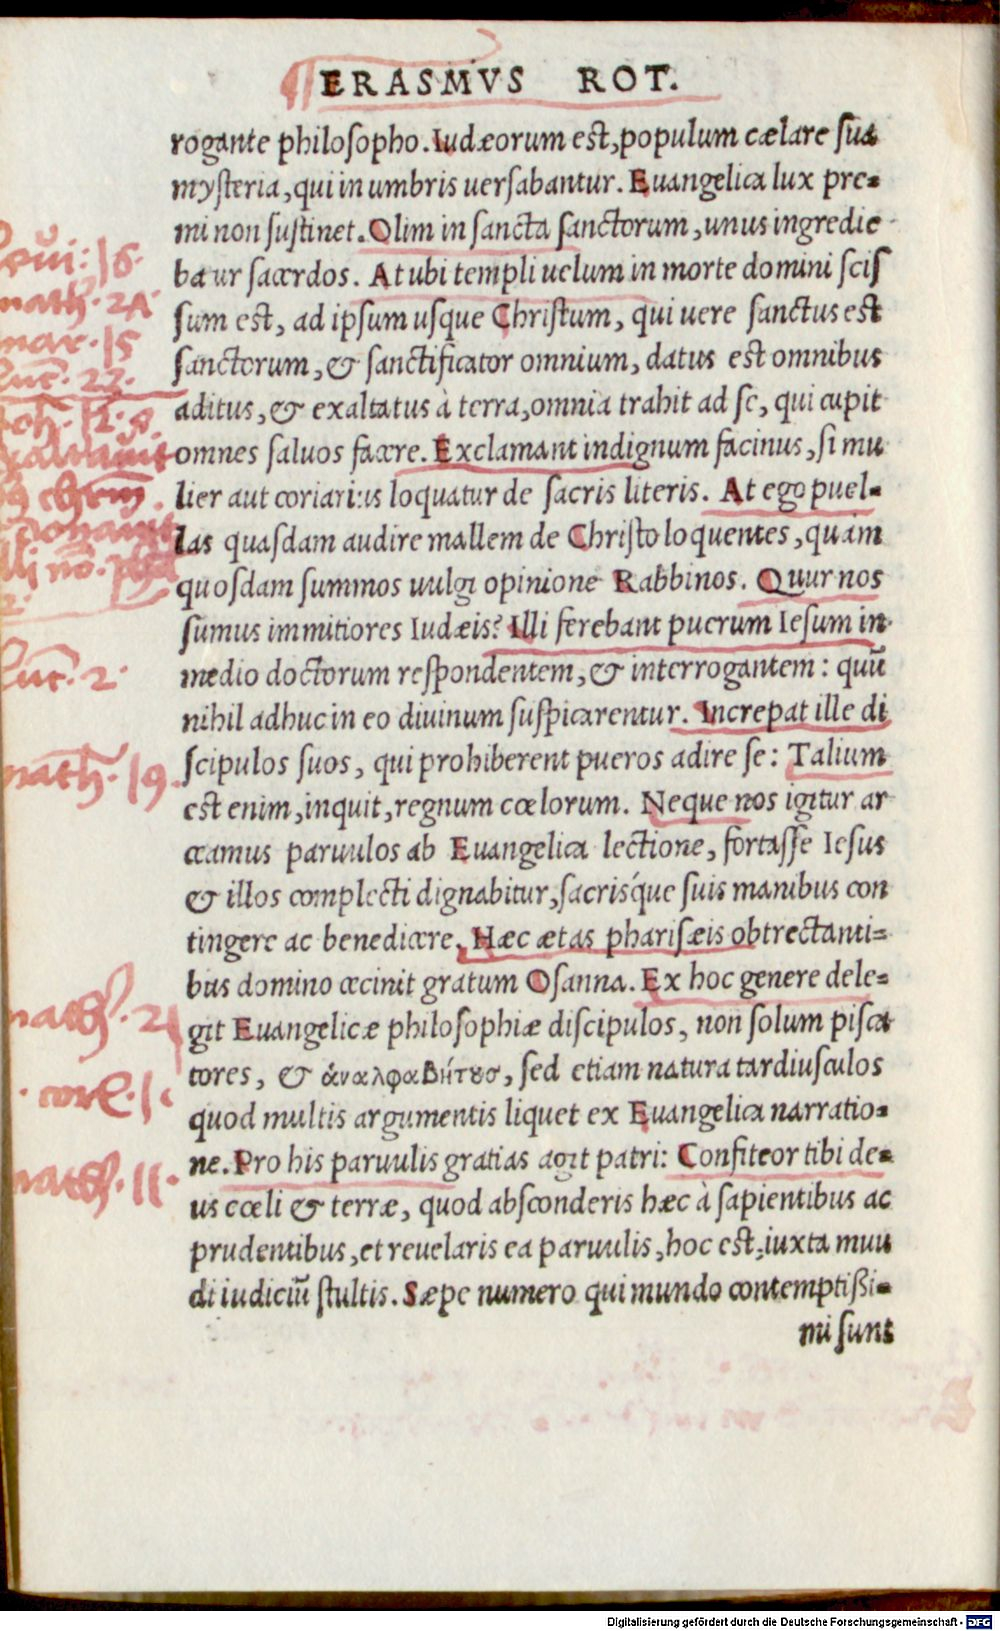 ERASMVS ROT.
rogante philosopho. Iudæorum est, populum cælare sua
mysteria, qui in umbris uersabantur. Euangelica lux pre-
mi non sustinet. Olim in sancta sanctorum, unus ingredie
batur sacerdos. At ubi templi uelum in morte domini scis
sum est, ad ipsum usque Christum, qui uere sanctus est
sanctorum, & sanctificator omnium, datus est omnibus
aditus, & exaltatus à terra, omnia trahit ad se, qui cupit
omnes saluos facere. Exclamant indignum facinus, si mu
lier aut coriarius loquatur de sacris literis. At ego puel-
las quasdam audire mallem de Christo loquentes, quàm
quosdam summos uulgi opinione Rabbinos. Quur nos
sumus immitiores Iudæis? Illi ferebant puerum Iesum in
medio doctorum respondentem, & interrogantem: quū
nihil adhuc in eo diuinum suspicarentur. Increpat ille di
scipulos suos, qui prohiberent pueros adire se: Talium
est enim, inquit, regnum cœlorum. Neque nos igitur ar
ceamus paruulos ab Euangelica lectione, fortasse Iesus
& illos complecti dignabitur, sacrisq́ue suis manibus con
tingere ac benedicere. Hæc ætas pharisæis obtrectanti-
bus domino cecinit gratum Osanna. Ex hoc genere dele-
git Euangelicæ philosophiæ discipulos, non solum pisca
tores, & ἀναλφαβήτους, sed etiam natura tardiusculos
quod multis argumentis liquet ex Euangelica narratio-
ne. Pro his paruulis gratias agit patri: Confiteor tibi de-
us cœli & terræ, quod absconderis hæc à sapientibus ac
prudentibus, et reuelaris ea paruulis, hoc est, iuxta mun
di iudiciū stultis. Sæpe numero qui mundo contemptissi-
mi sunt
math. 24
mar. 15
Luc. 2.
math. 19.
math. 21
math. 11.
Digitalisierung gefördert durch die Deutsche Forschungsgemeinschaft - DFG